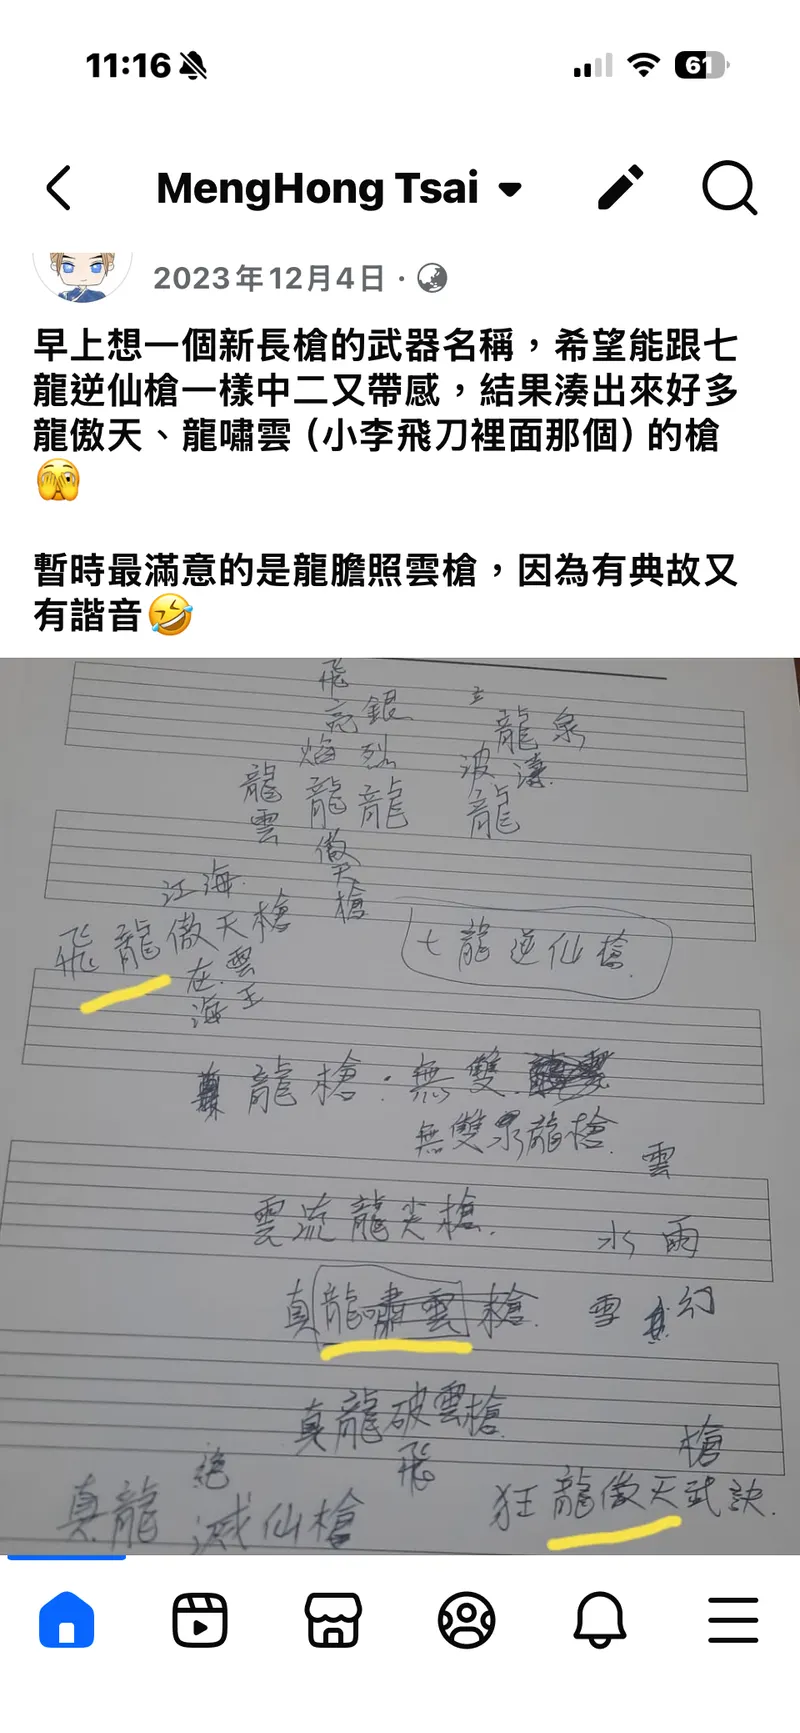 11:16
61
MengHong Tsai
2023年12月4日
早上想一個新長槍的武器名稱，希望能跟七
龍逆仙槍一樣中二又帶感，結果湊出來好多
龍傲天、龍嘯雲（小李飛刀裡面那個）的槍
🫣
暫時最滿意的是龍膽照雲槍，因為有典故又
有諧音🤣
飛
亮銀
焰烈
龍泉
波濤
龍龍龍
龍
雲
傲
天
槍
江海
飛龍傲天槍
在雲
海王
七龍逆仙槍
真龍槍·無雙
無雙泉龍槍
雲
雲流龍尖槍
水雨
真龍嘯雲槍
雪
幻
真龍破雲槍
飛
絕
真龍滅仙槍
槍
狂龍傲天武訣